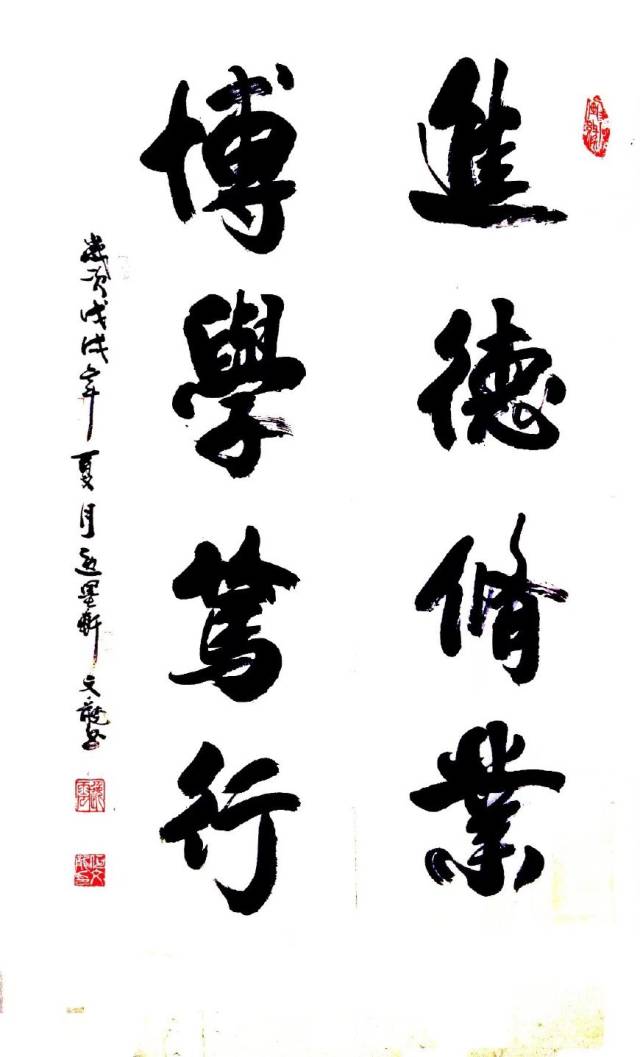 進德脩業
博學篤行
歲次戊戌年夏月逸墨軒文龍書